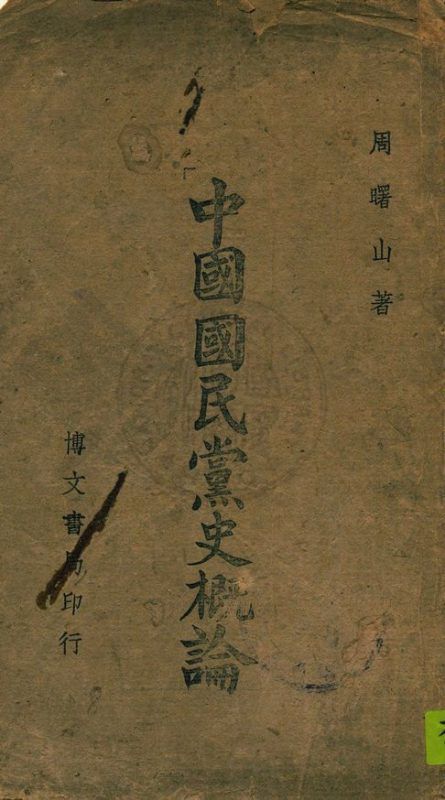 周曙山著
中國國民黨史概論
博文書局印行